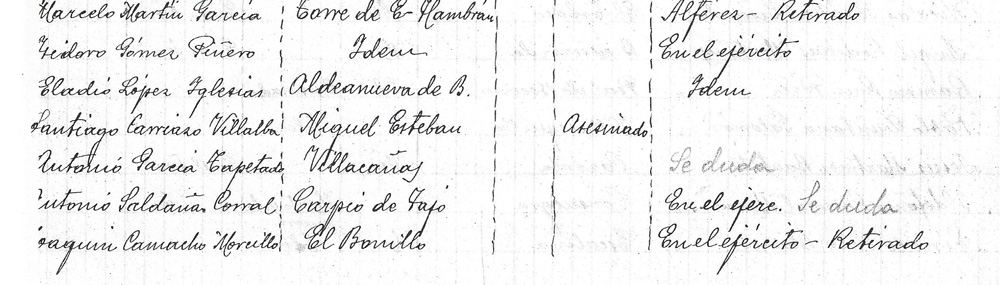 Marcelo Martín García Torre de E-Hambrán Alférez - Retirado
Isidoro Gómez Piñero Idem En el ejército
Eladio López Iglesias Aldeanueva de B. Idem
Santiago Carriazo Villalba Miguel Esteban Asesinado
Antonio García Tapetado Villacañas Se duda
Antonio Saldaña Corral Carpio de Tajo En el ejérc. Se duda
Joaquín Camacho Morcillo El Bonillo En el ejército - Retirado